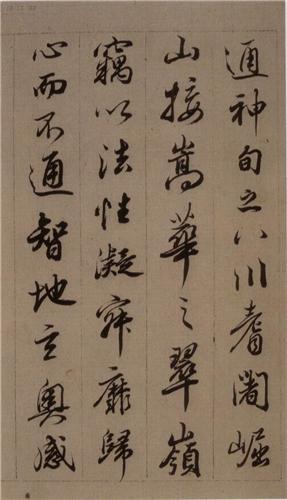 通神甸之八川耆闍崛
山接嵩華之翠嶺
竊以法性凝寂靡歸
心而不通智地玄奧感